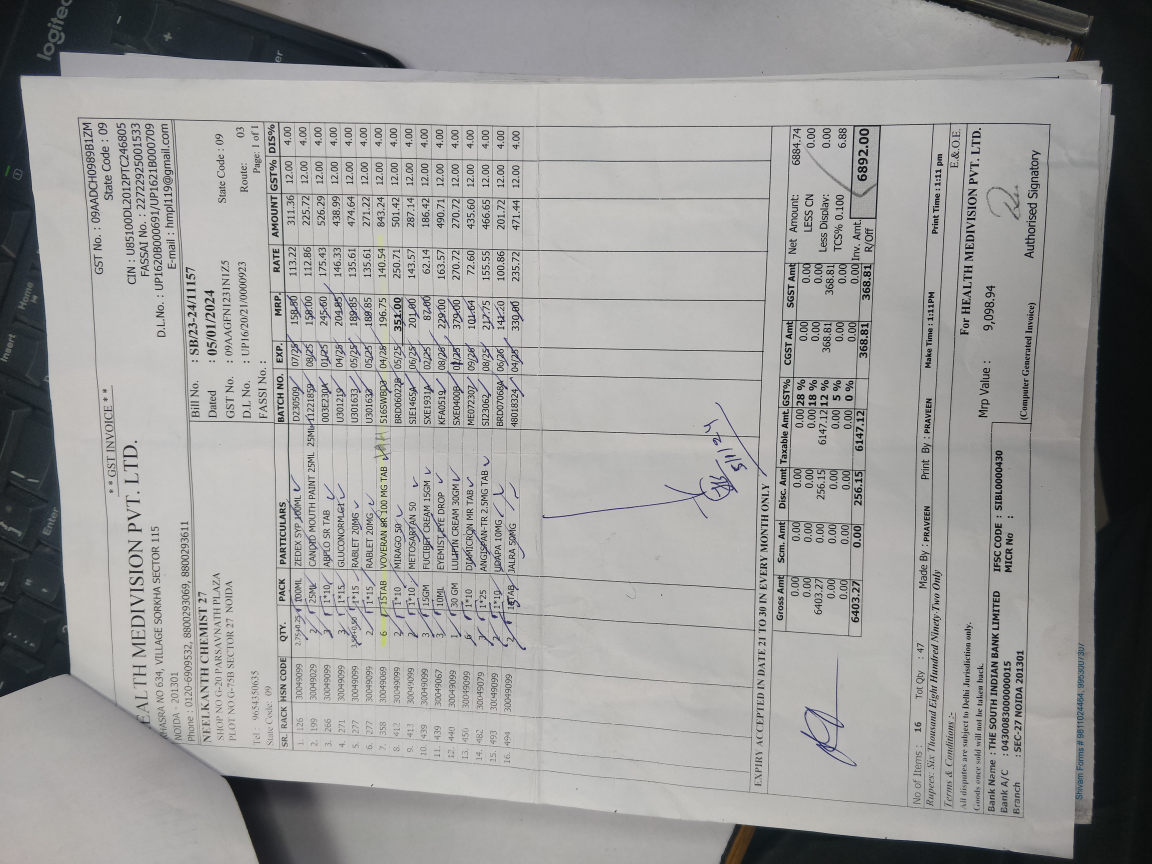 * * GST INVOICE * *
GST No. : 09AADCH0989B1ZM
EALTH MEDIVISION PVT. LTD.
State Code : 09
HASRA NO 634, VILLAGE SORKHA SECTOR 115
CIN : U8510DL2012PTC246805
NOIDA - 201301
FASSAI No. : 22722925001533
Phone : 0120-6909532, 8800293069, 8800293611
D.L.No. : UP1620B000691/UP1621B000709
E-mail : hmpl119@gmail.com
NEELKANTH CHEMIST 27
SHOP NO G-20 PARSAVNATH PLAZA
PLOT NO G-75B SECTOR 27 NOIDA
Tel : 9654350635
State Code: 09
Bill No. : SB/23-24/11157
Dated : 05/01/2024
GST No. : 09AAGFN1231N1Z5 State Code : 09
D.L No. : UP16/20/21/0000923 Route: 03
FASSI No. : Page: 1 of 1
SR. RACK HSN CODE QTY. PACK PARTICULARS BATCH NO. EXP. MRP. RATE AMOUNT GST% DIS%
1. 126 30049099 2.75+0.25 100ML ZEDEX SYP 100ML D230509 07/25 113.22 311.36 12.00 4.00
2. 199 30049029 2 25ML CANDID MOUTH PAINT 25ML 25ML 11221859 08/25 158.00 112.86 225.72 12.00 4.00
3. 266 30049099 3 1*10 ABFLO SR TAB 01/25 245.60 175.43 526.29 12.00 4.00
4. 271 30049099 3 1*15 GLUCONORM G1 U301219 04/25 204.85 146.33 438.99 12.00 4.00
5. 277 30049099 1*15 RABLET 20MG U301633 05/25 189.85 135.61 474.64 12.00 4.00
6. 277 30049099 2 1*15 RABLET 20MG U301633 05/25 189.85 135.61 271.22 12.00 4.00
7. 358 30049069 6 15TAB VOVERAN SR 100 MG TAB 04/28 196.75 140.54 843.24 12.00 4.00
8. 412 30049099 2 1*10 MIRAGO 50 BRD06022B 05/25 351.00 250.71 501.42 12.00 4.00
9. 413 30049099 2 1*10 METOSARTAN 50 SIE1465A 06/25 201.00 143.57 287.14 12.00 4.00
10. 439 30049099 3 15GM FUCIBET CREAM 15GM SXE1931A 02/25 87.00 62.14 186.42 12.00 4.00
11. 439 30049067 3 10ML EYEMIST EYE DROP KFA0519 08/26 229.00 163.57 490.71 12.00 4.00
12. 440 30049099 1 30 GM LULIFIN CREAM 30GM SXED400B 379.00 270.72 270.72 12.00 4.00
13. 450 30049099 6 1*10 DIAMICRON MR TAB ME072307 09/26 101.64 72.60 435.60 12.00 4.00
14. 482 30049079 3 1*25 ANGISPAN-TR 2.5MG TAB SI23062 08/25 217.75 155.55 466.65 12.00 4.00
15. 493 30049099 2 1*10 UDAPA 10MG BRD07068A 06/26 141.20 100.86 201.72 12.00 4.00
16. 494 30049099 2 15TAB JALRA 50MG 48018324 04/25 330.00 235.72 471.44 12.00 4.00
5/1/24
EXPIRY ACCEPTED IN DATE 21 TO 30 IN EVERY MONTH ONLY
Gross Amt Scm. Amt Disc. Amt Taxable Amt. GST% CGST Amt SGST Amt Net Amount: 6884.74
0.00 0.00 0.00 0.00 28 % 0.00 0.00 LESS CN 0.00
0.00 0.00 0.00 0.00 18 % 0.00 0.00 Less Display: 0.00
6403.27 0.00 256.15 6147.12 12 % 368.81 368.81 TCS% 0.100 6.88
0.00 0.00 0.00 0.00 5 % 0.00 0.00
0.00 0.00 0.00 0.00 0 % 0.00 0.00 Inv. Amt. 6892.00
6403.27 0.00 256.15 6147.12 368.81 368.81 R/Off
No of Items : 16 Tot Qty : 47 Made By : PRAVEEN Print By : PRAVEEN Make Time : 1:11PM Print Time : 1:11 pm
Rupees: Six Thousand Eight Hundred Ninety Two Only
Terms & Conditions :- E.& O.E.
All disputes are subject to Delhi Jurisdiction only.
Goods once sold will not be taken back.
For HEALTH MEDIVISION PVT. LTD.
Bank Name : THE SOUTH INDIAN BANK LIMITED IFSC CODE : SIBL0000430 Mrp Value : 9,098.94
Bank A/C : 0430083000000015 MICR No :
Branch : SEC-27 NOIDA 201301 (Computer Generated Invoice) Authorised Signatory
Shivam Forms # 9811024464, 9953007307
logitech
Home
Insert
Enter